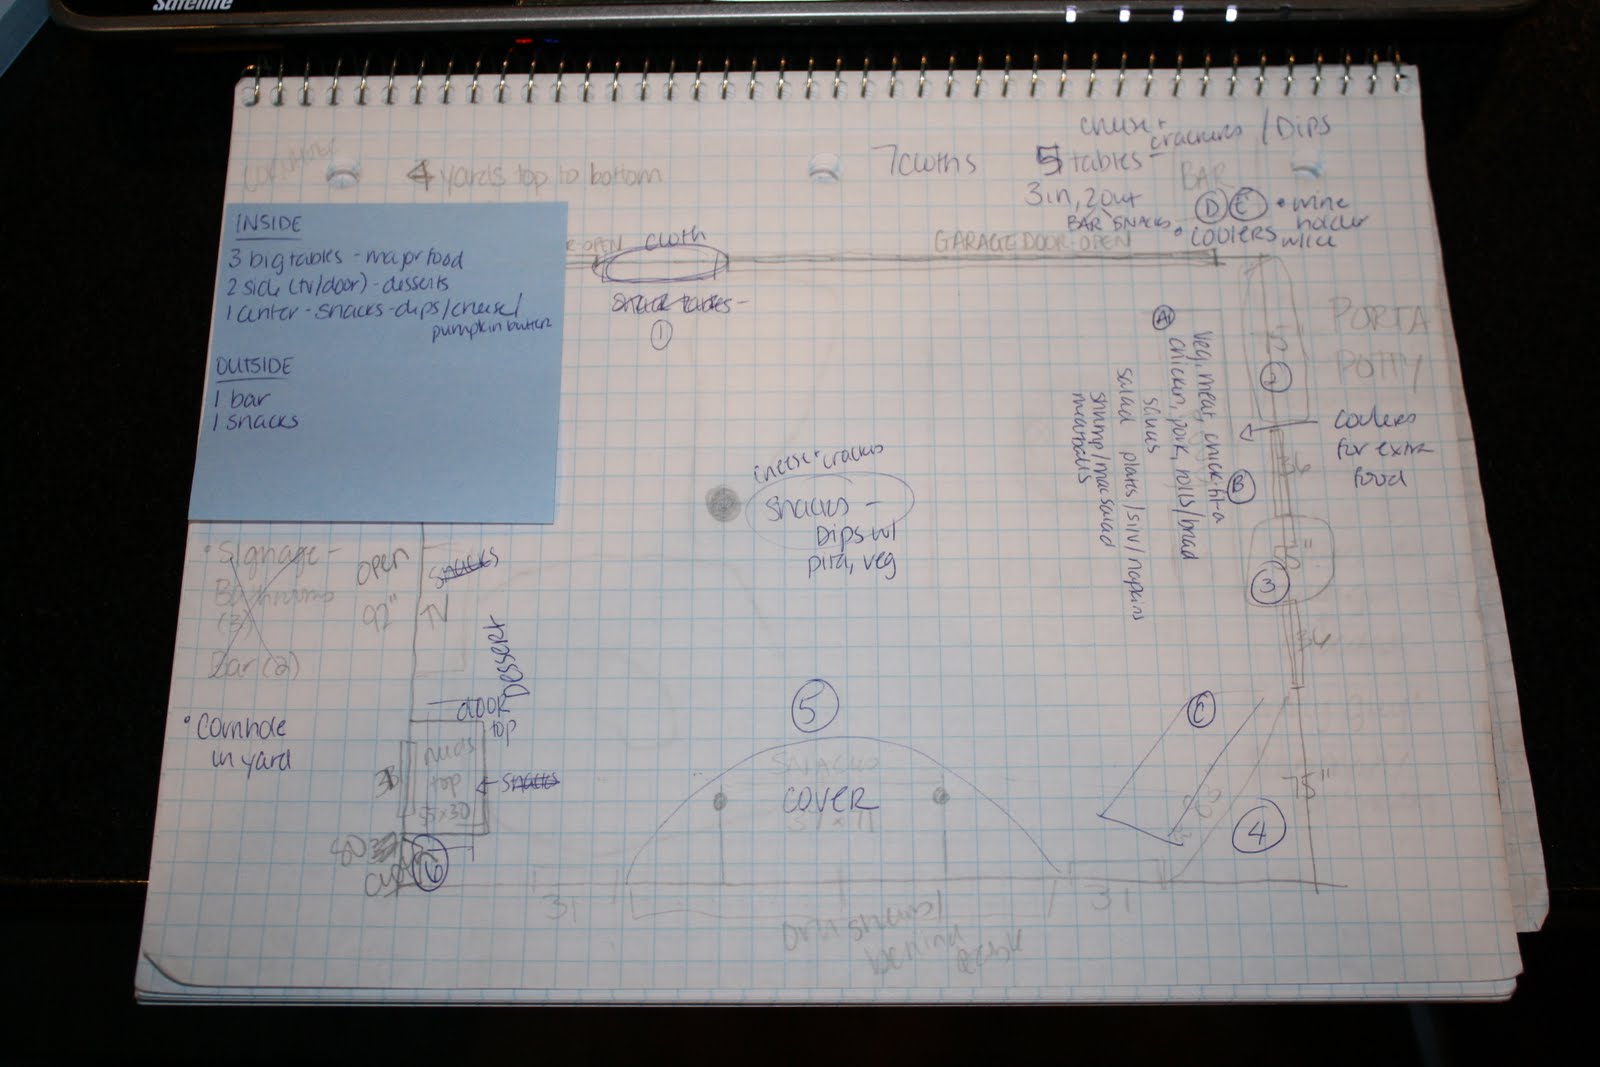 Satellite
CORNHOLE
4 yards top to bottom
7 cloths
cheese +
crackers / Dips
5 tables -
3 in, 2 out
BAR SNACKS -
BAR
D E
• wine
holder
w/ice
• COOLERS
INSIDE
3 big tables - major food
2 side (tv/door) - desserts
1 center - snacks - dips/cheese/
pumpkin butter
OUTSIDE
1 bar
1 snacks
OPEN
cloth
GARAGE DOOR OPEN
snack tables -
1
A
veg, meat, chick-fil-a
chicken, pork, rolls/bread
sauces
salad plates/silv/napkins
shrimp/mac salad
meatballs
75
2
PORTA
POTTY
coolers
for extra
food
36
B
75"
3
36
cheese + crackers
snacks -
Dips w/
pita, veg
• Signage -
Bathrooms
(3)
Bar (2)
open
92"
snacks
TV
Dessert
door
top
• Cornhole
in yard
top
51x30
snacks
6
5
SNACKS
COVER
C
4
75"
31
31
behind